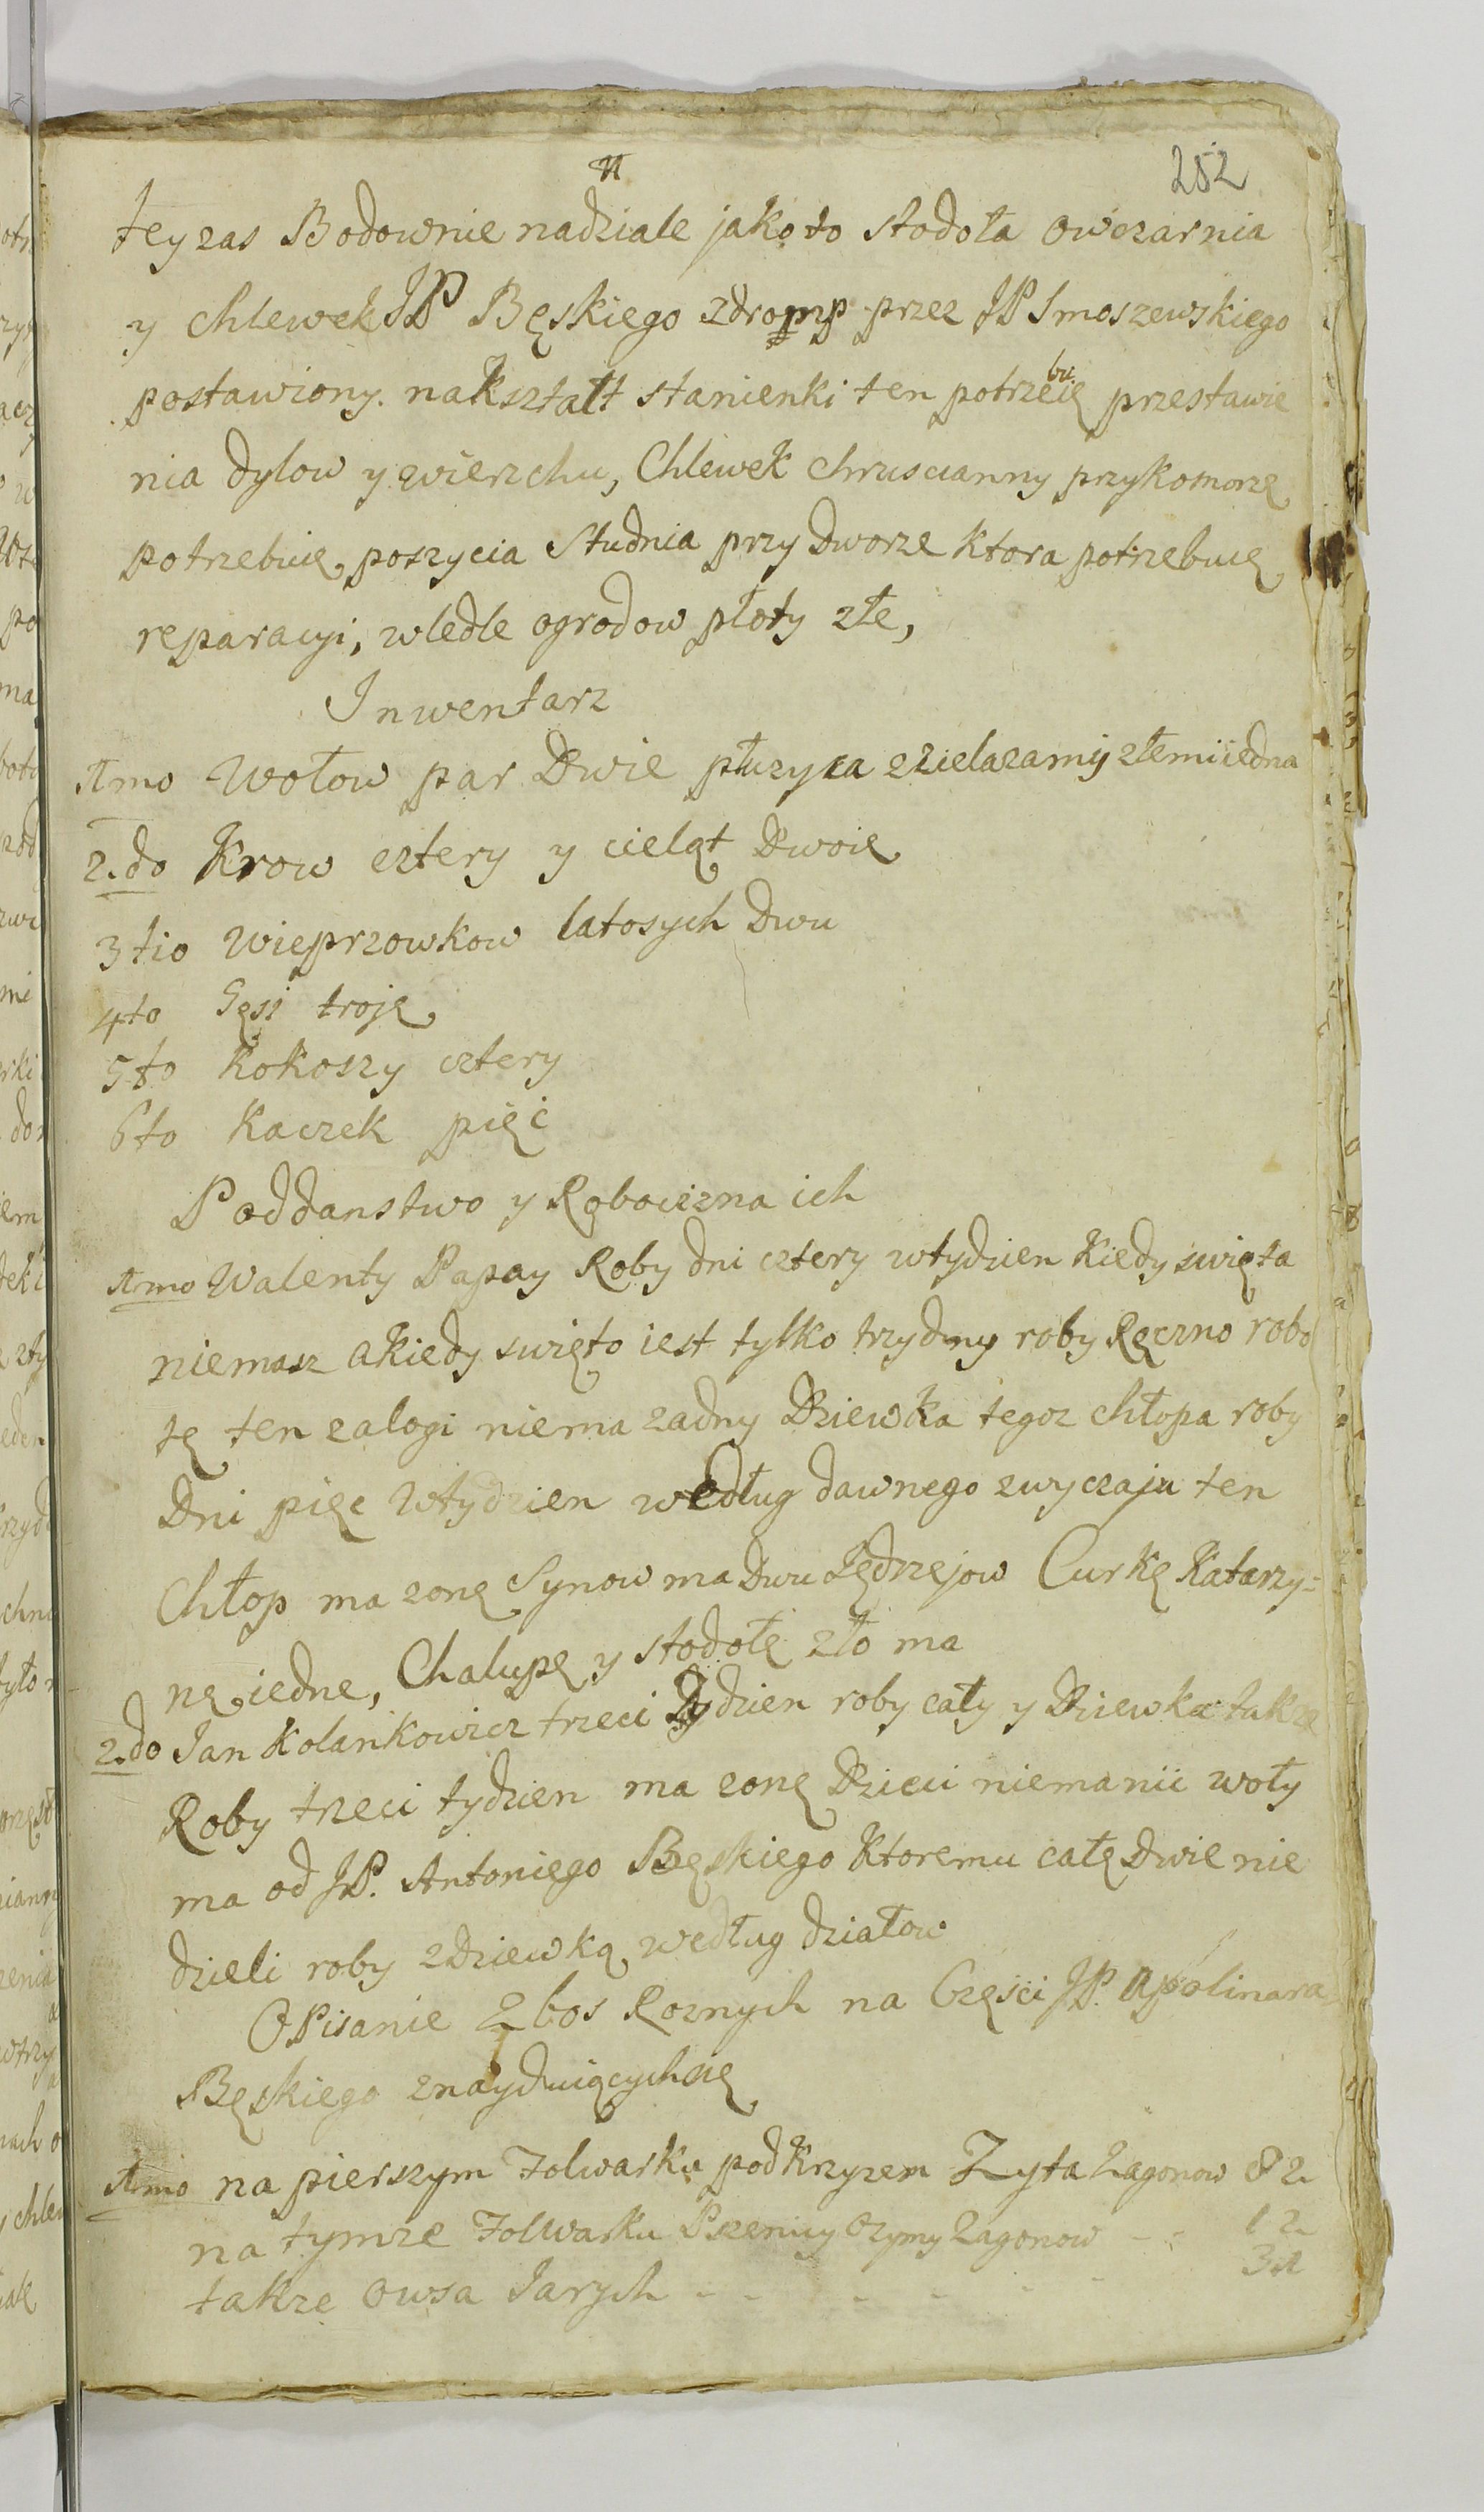 n
252
tey zas Bodownie nadziale jako to stodoła owczarnia
y chlewek JP Bęskiego zdromp przez JP Smoszewskiego
postawiony. nakształt stanienki ten potrzebuię przestawie
nia dylow y wierzchu, Chlewek chruscianny przykomorzę
potrzebuię poszycia Studnia przy Dworze ktora potrzebuię
reparacyi, wledle ogrodow płoty złe,
Inwentarz
1mo Wołow par Dwie płuzyca zzielazamy złemi iedna
2.do Krow cztery y cieląt Dwoię
3tio Wieprzowkow latosych Dwu
4to Gęsi troję
5to Kokoszy cztery
6to Kaczek pięć
Poddanstwo y Robocizna ich
1mo Walenty Papay Roby dni cztery wtydzien Kiedy swięta
niemasz akiedy swięto iest tylko trzy dny roby Ręczno robo
tę ten zalogi niema zadny Dziewka tegoz chłopa roby
Dni pięc wtydzien według dawnego zwyczaju ten
Chłop ma zonę Synow ma Dwu Jędrzejow Curkę Katarzy=
nę iedne, Chalupę y stodołę zło ma
2.do Jan Kolankowicz trzeci Tydzien roby cały y Dziewka takze
Roby trzeci tydzien ma zonę Dzieci niema nii woły
ma od JP. Antoniego Bęskiego Ktoremu całę Dwie nie
dzieli roby zdziewką według działow
OPisanie Zbos Roznych na Częsci JP. Apolinara
Bęskiego znayduiącychsię
1mo na pierszym Folwarku pod Krzyzem Zyta Zagonow 82
na tymze Folwarku Pszenicy Ozymy Zagonow - - 12
takze Owsa Jarych - - - - - - 31